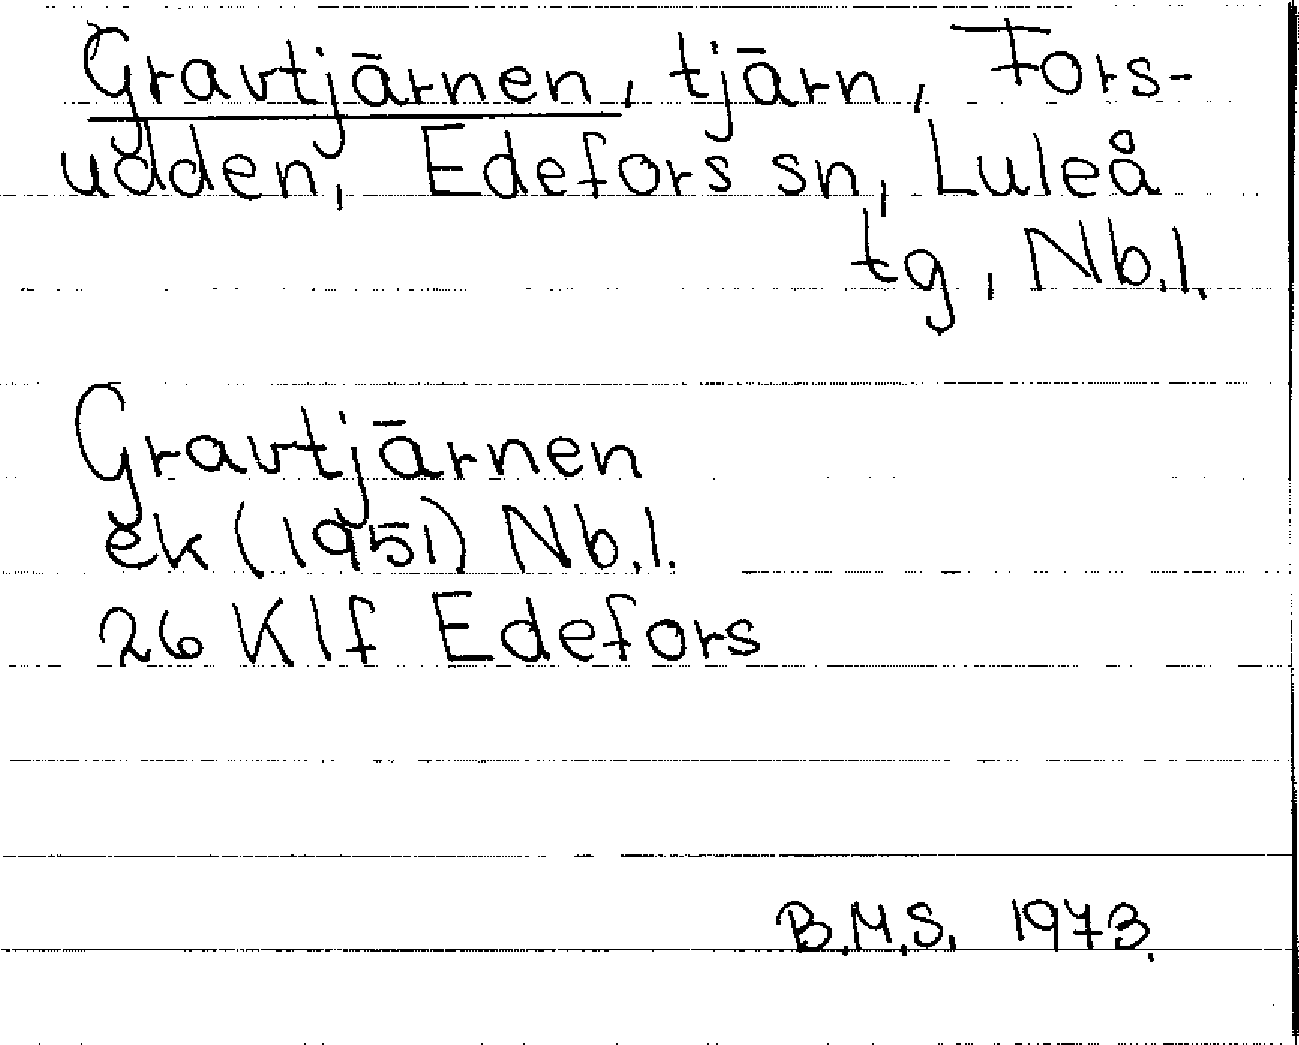 Gravtjärnen, tjärn, Fors-
udden, Edefors sn, Luleå
tg, Nb.l.
Gravtjärnen
ek (1951) Nb.l.
26 K l f Edefors
B.M.S. 1973.